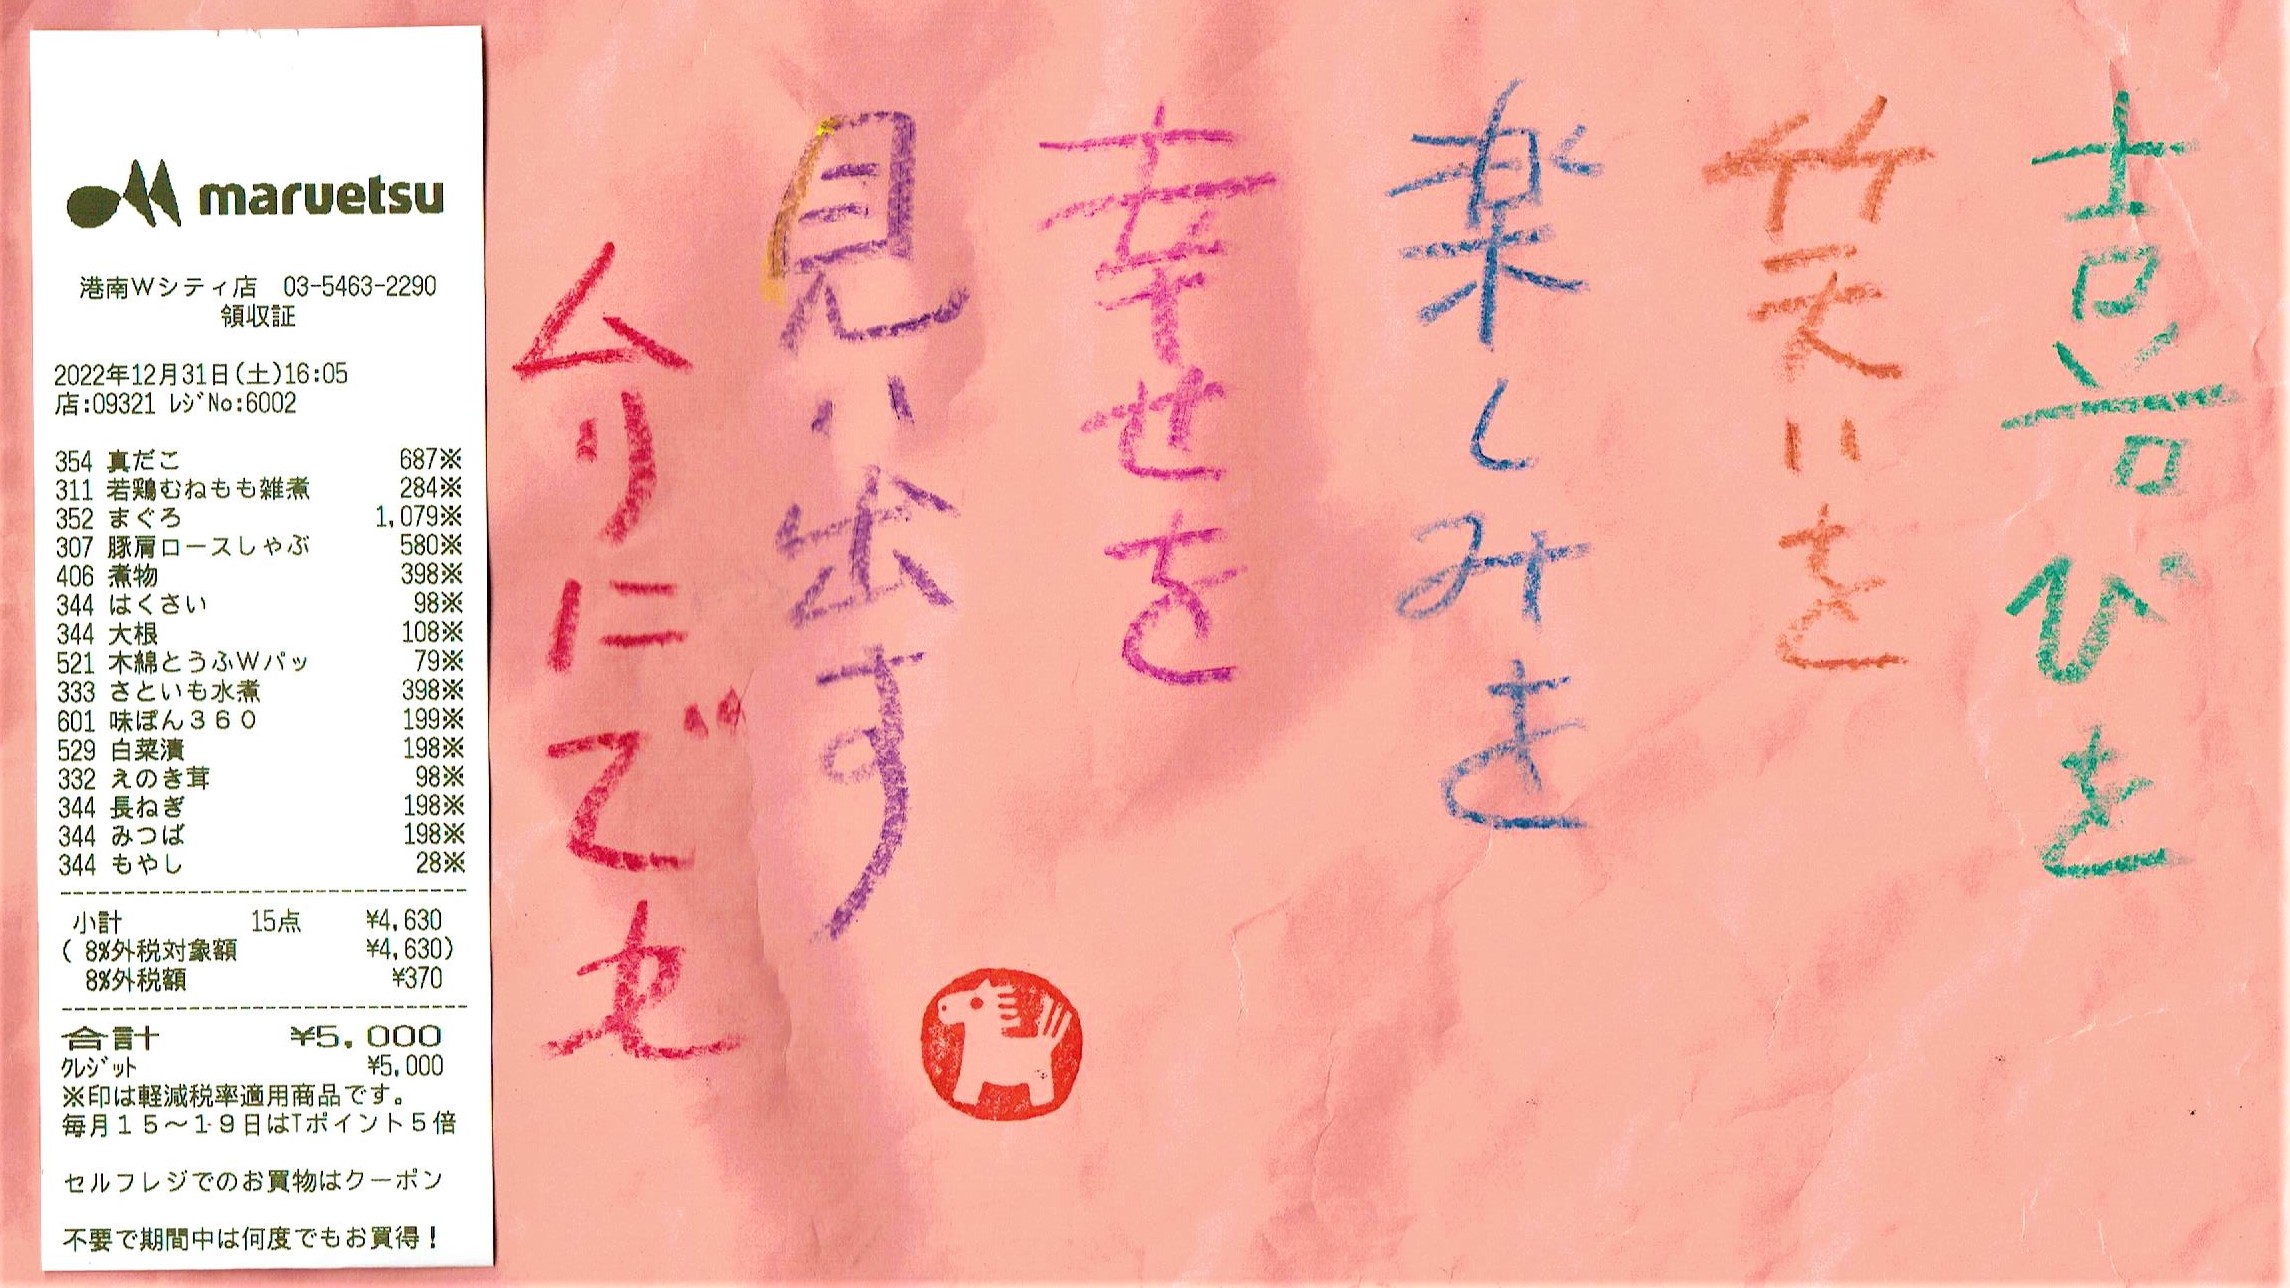 喜びを
笑いを
楽しみを
幸せを
見い出す
ムリにでも
maruetsu
港南Wシティ店 03-5463-2290
領収証
2022年12月31日(土)16:05
店:09321 ﾚｼﾞNo:6002
354 真だこ 687※
311 若鶏むねもも雑煮 284※
352 まぐろ 1,079※
307 豚肩ロースしゃぶ 580※
406 煮物 398※
344 はくさい 98※
344 大根 108※
521 木綿とうふWパッ 79※
333 さといも水煮 398※
601 味ぽん３６０ 199※
529 白菜漬 198※
332 えのき茸 98※
344 長ねぎ 198※
344 みつば 198※
344 もやし 28※
小計 15点 ¥4,630
( 8%外税対象額 ¥4,630)
8%外税額 ¥370
合計 ¥5,000
ｸﾚｼﾞｯﾄ ¥5,000
※印は軽減税率適用商品です。
毎月１５～１９日はTポイント５倍
セルフレジでのお買物はクーポン
不要で期間中は何度でもお買得！